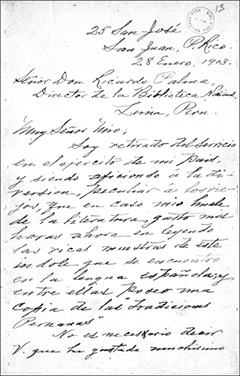 13
25 San José
San Juan, P. Rico.
28 Enero, 1913.
Señor Don Ricardo Palma,
Director de la Biblioteca
Lima, Peru.
Muy Señor Mio,
Soy retirado del servicio
en el ejército de mi pais,
y siendo aficionado á la di-
version, peculiar á los vie-
jos, que en caso mio huele
de la literatura, gasto mis
horas ahora en leyendo
las ricas muestras de este
indole que se encuentra
en la lengua española, y
entre ellas poseo una
copia de las "Tradiciones
Peruanas"
No es necesario decir
V. que he gustado muchisimo